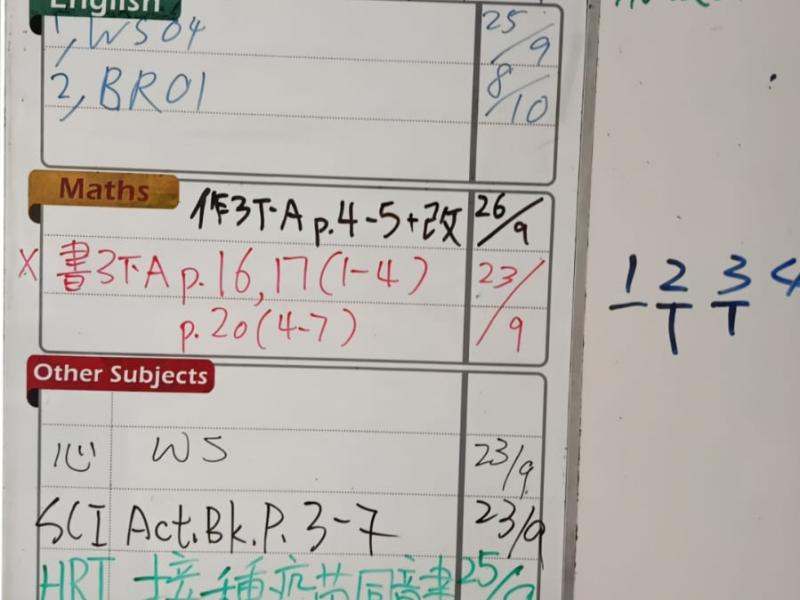 English
1, WS04 25/9
2, BR01 8/10
Maths
作3下A p.4-5+改 26/9
X 書3下A p.16,17(1-4) 23/9
p.20(4-7)
1 2 3 4
Other Subjects
心 WS 23/9
SCI Act.Bk.P.3-7 23/9
HRT 接種疫苗同意書 25/9